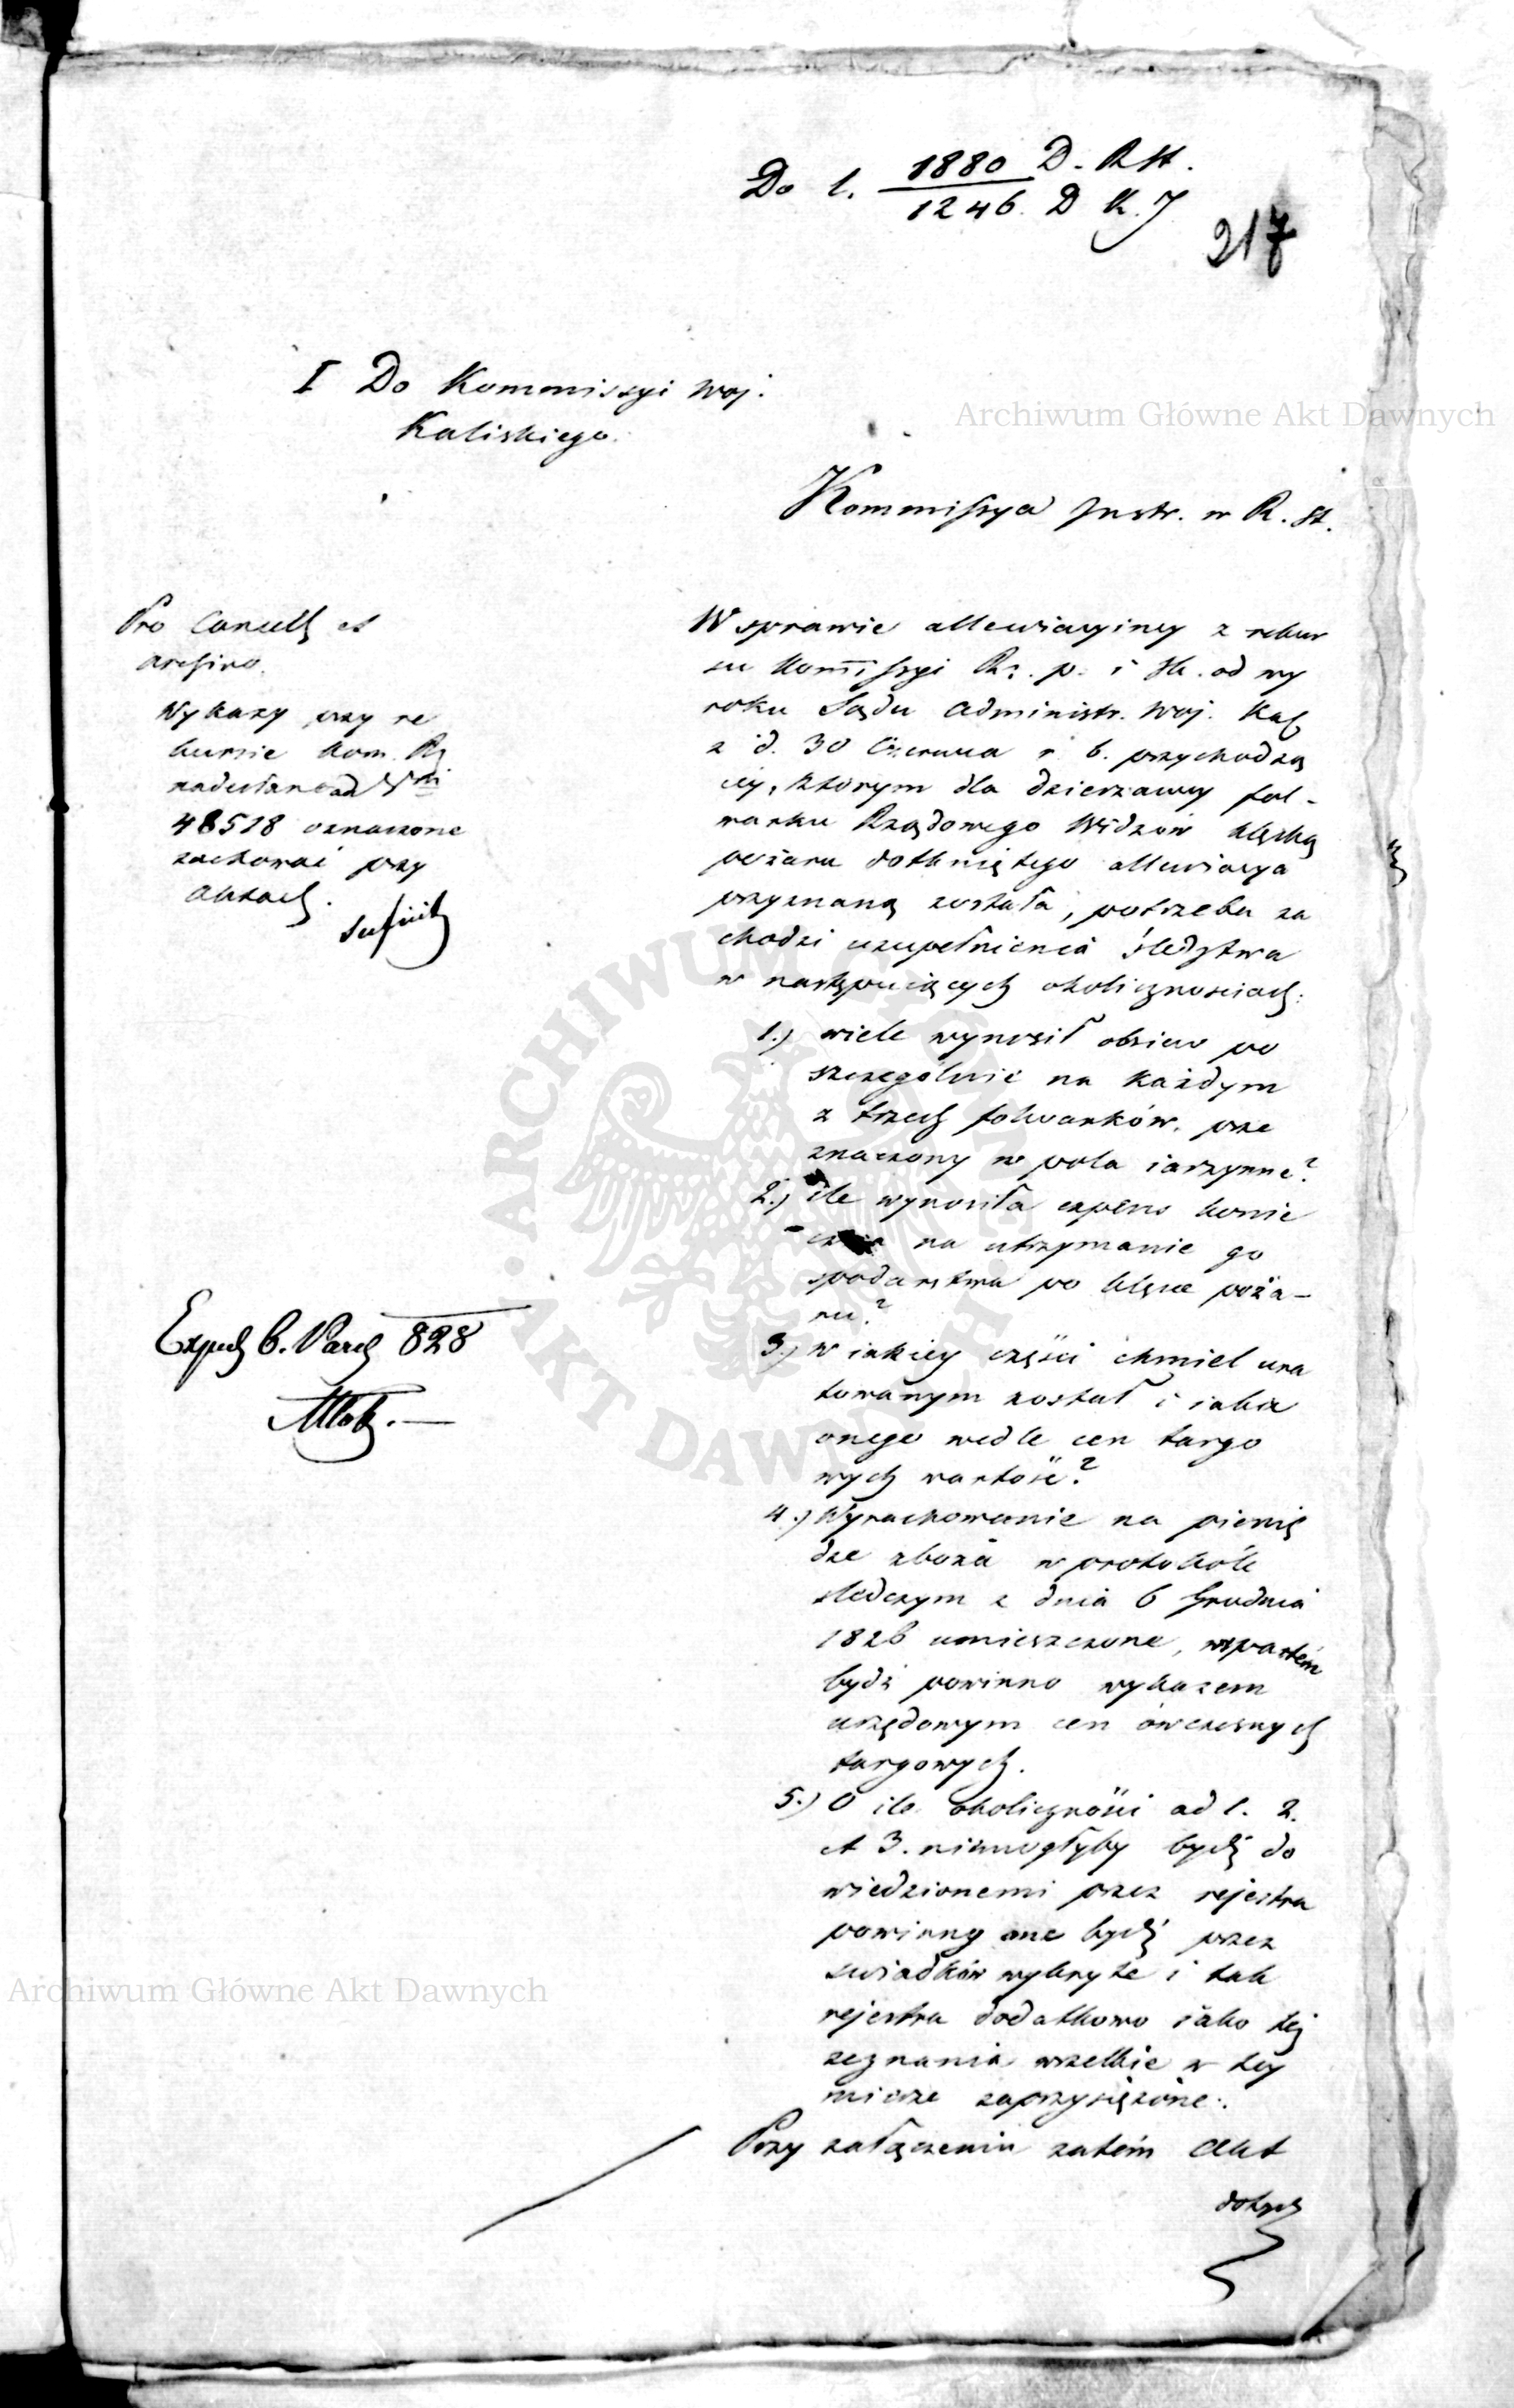 Do l. 1880 D. R St.
1246. D K. J
217
I Do Kommissyi Woj.
Kaliskiego.
Archiwum Główne Akt Dawnych
Kommissya Instr. w R. St.
Pro Cancell et
archivo.
Wykazy przy re
kursie Kom. Rz
nadesłane ad Nrm
48518 oznaczone
zachować przy
aktach.
Exped 6. Paźd 828
W sprawie allewiacyiney z rekur
su Kommissyi Rz. p. i Sk. od wy
roku Sądu Administr. Woj. Kal
z d. 30 Czerwca r b. przychodzą
cey, którym dla dzierzawcy fol-
warku Rządowego Widzów klęską
pożaru dotkniętego allewiacya
przyznaną została, potrzeba za
chodzi uzupełnienia śledztwa
w następuiących okolicznosciach:
1.) wiele wynosił obsiew po
szczególnie na każdym
z trzech folwarków, prze
znaczony w pola iarzynne?
2.) ile wynosiła expens konie
czna na utrzymanie go
spodarstwa po klęsce poża-
ru?
3.) w iakiey części chmiel ura
towanym został i iaka
onego wedle cen targo
wych wartość?
4.) Wyrachowanie na pienię
dze zboża w protokóle
śledczym z dnia 6 Grudnia
1826 umieszczone, wspartém
bydź powinno wykazem
urzędowym cen ówczesnych
targowych.
5.) O ile okoliczności ad 1. 2.
et 3. niemogłyby bydź do
wiedzionemi przez rejestra
powinny one bydź przez
swiadków wykryte i tak
rejestra dodatkowo iako też
zeznania wszelkie w tey
mierze zaprzysiężone.
Przy załączeniu zatém Akt
dotych
Archiwum Główne Akt Dawnych
ARCHIWUM GŁÓWNE AKT DAWNYCH